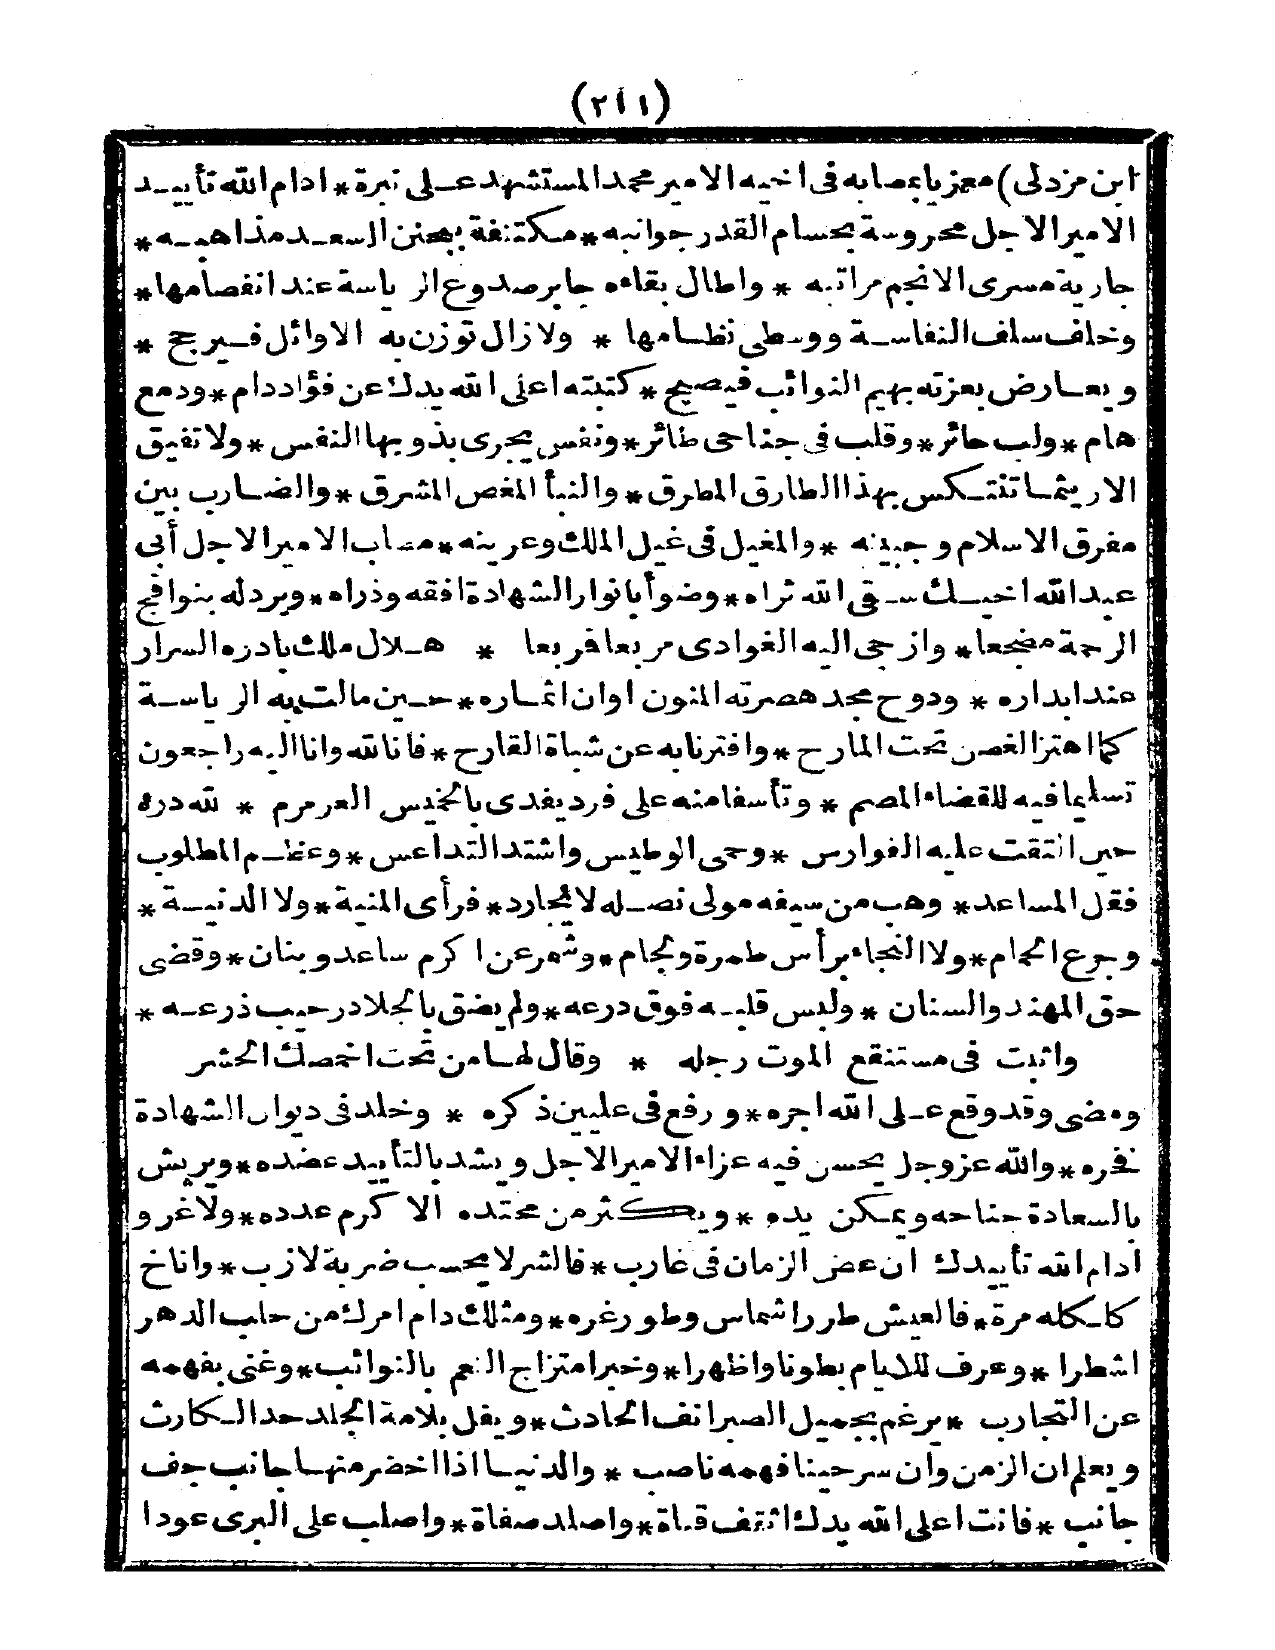 (٢١١)
ابن مزدلى) معزيا بمصابه فى اخيه الامير محمد المستشهد على نبرة * ادام الله تأييد
الامير الاجل محروسة بحسام القدر جوانبه * مكتنفة بهنن السعد مذاهبه *
جارية مسرى الانجم مراتبه * واطال بقاءه جابر صدوع الرياسة عند انفصامها *
وخلف سلف النفاسة ووسطى نظامها * ولا زال توزن به الاوائل فيرجح *
ويعارض بعزته بهيم النوائب فيصبح * كتبته اعلى الله يدك عن فؤاد دام * ودمع
هام * ولب حائر * وقلب فى جناحى طائر * ونفس يجرى بذوبها النفس * ولا تفيق
الا ريثما تنتكس بهذا الطارق المطرق * والنبأ المغص المشرق * والضارب بين
مفرق الاسلام وجبينه * والمغيل فى غيل الملك وعرينه * مصاب الامير الاجل أبى
عبد الله اخيك سقى الله ثراه * وضوأ بانوار الشهادة افقه وذراه * وبرد له بنوافح
الرحمة مضجعا * وازجى اليه الغوادى مربعا فربعا * هلال ملك بادره السرار
عند ابداره * ودوح مجد هصرته المنون اوان اثماره * حين مالت به الرياسة
كما اهتز الغصن تحت المارح * وافترنا به عن شباة القارح * فانا لله وانا اليه راجعون
تسليما فيه للقضاء المصمم * وتأسفا منه على فرد يفدى بالخميس العرمرم * لله دره
حين التقت عليه الفوارس * وحمى الوطيس واشتد التداعس * وعظم المطلوب
فقل المساعد * وهب من سيفه مولى نصله لا يحارد * فرأى المنية * ولا الدنية *
وجرع الحمام * ولا النجاء برأس طمرة ولجام * وشمر عن اكرم ساعد وبنان * وقضى
حق المهند والسنان * ولبس قلبه فوق درعه * ولم يضق بالجلاد رحيب ذرعه *
واثبت فى مستنقع الموت رجله * وقال لها من تحت اخمصك الحشر
ومضى وقد وقع على الله اجره * ورفع فى عليين ذكره * وخلد فى ديوان الشهادة
فخره * والله عز وجل يحسن فيه عزاء الامير الاجل ويشد بالتأييد عضده * ويريش
بالسعادة جناحه ويمكن يده * ويكثر من محتده الاكرم عدده * ولا غرو
ادام الله تأييدك ان عض الزمان فى غارب * فالشر لا يحسب ضربة لازب * واناخ
كاكله مرة * فالعيش طورا شماس وطور غره * ومثلك دام امرك من حلب الدهر
اشطرا * وعرف للايام بطونا واظهرا * وخبر امتزاج النعم بالنوائب * وغنى بفهمه
عن التجارب * يرغم بجميل الصبر انف الحادث * ويفل بلامة الجلد حد الكارث
ويعلم ان الزمن وان سر حينا فهمه ناصب * والدنيا اذا اخضر منها جانب جف
جانب * فانت اعلى الله يدك اثقف قناة * واصلد صفاة * واصلب على البرى عودا